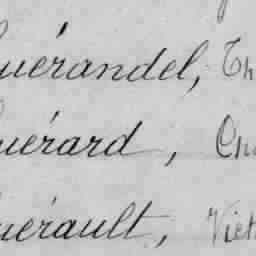 uérandel, Th
uérard, Cha
uérault, Vict